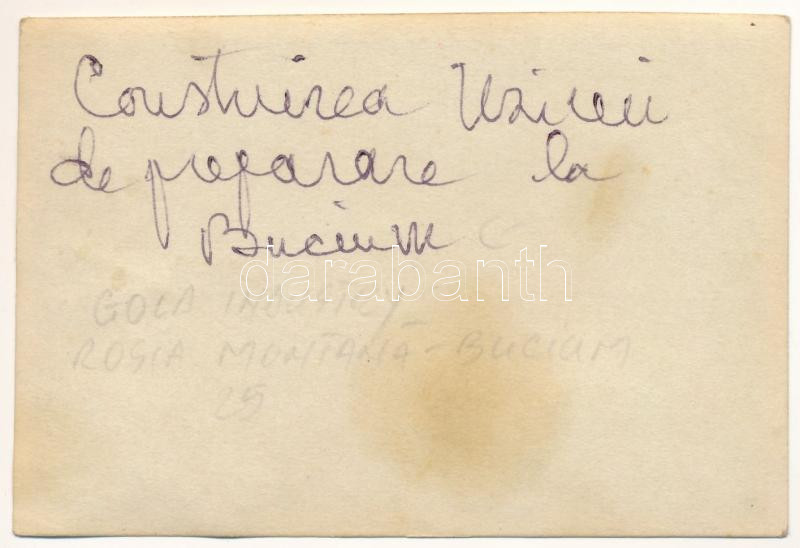 Construirea Uzinei
de preparare la
Bucium
darabanth
GOLD INDUSTRY
ROSIA MONTANĂ - BUCIUM
25